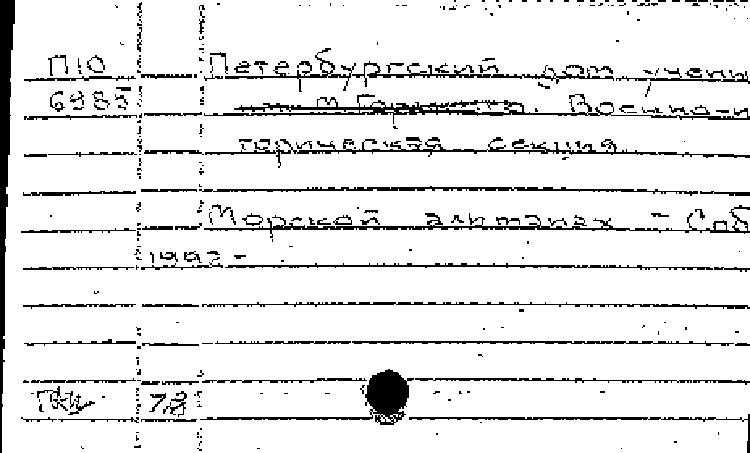 П10 Петербургский дом учены
6985 им. М. Горького. Военно-и
торическая секция
Морской альманах - Спб
1992-
78